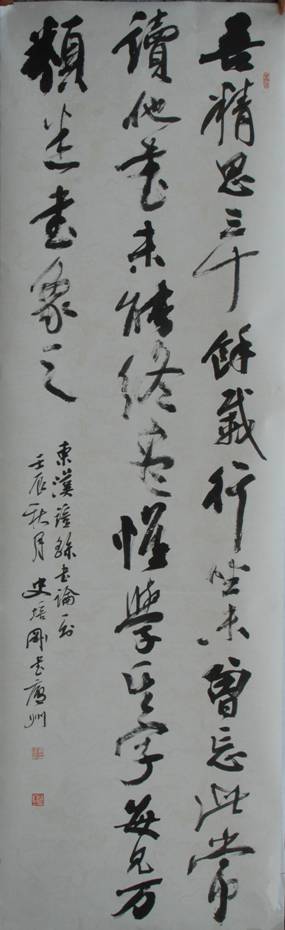 吾精思三十餘載行坐未曾忘此常
讀他書未能終盡惟學其字每見万
類悉書象之
東漢鍾繇書論一則
壬辰秋月史培剛書廣州